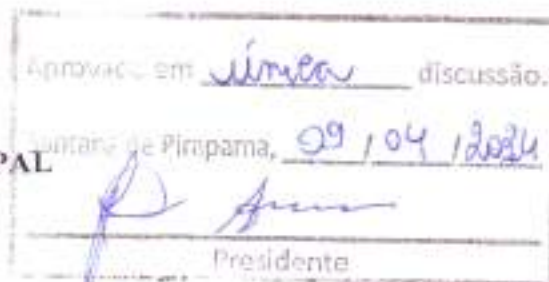 Aprovado em única discussão.
Santana de Pirapama, 09 / 04 / 2024
PAL
Presidente